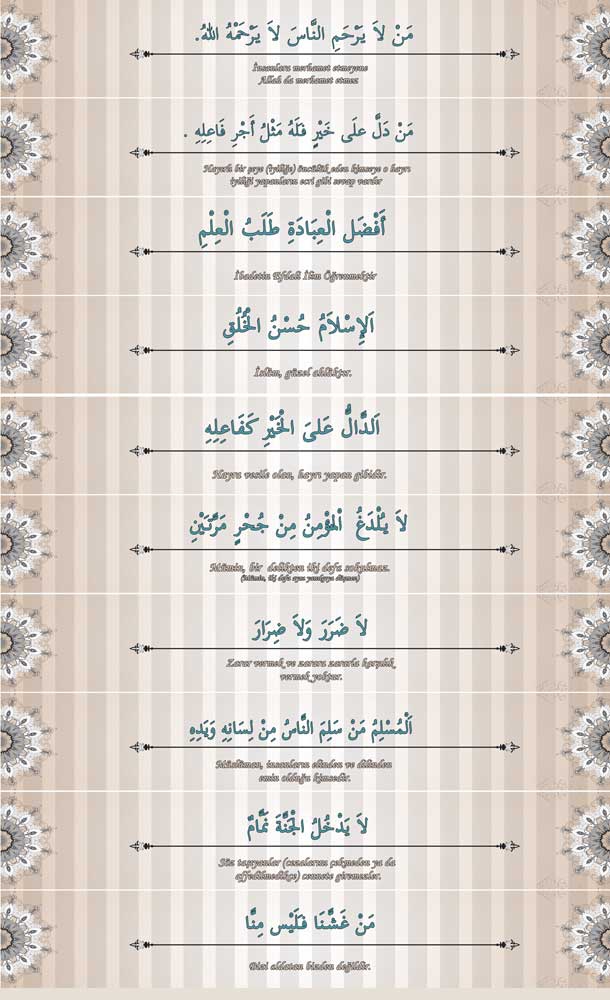 مَنْ لاَ يَرْحَمِ النَّاسَ لاَ يَرْحَمْهُ اللهُ.
İnsanlara merhamet etmeyene
Allah da merhamet etmez
مَنْ دَلَّ علَى خَيْرٍ فَلَهُ مَثْلُ أَجْرِ فَاعِلِهِ .
Hayırlı bir şeye (iyiliğe) öncülük eden kimseye o hayrı
iyiliği yapanların ecri gibi sevap vardır
أَفْضَل الْعِبَادَةِ طَلَبُ الْعِلْمِ
İbadetin Efdali İlim Öğrenmektir
اَلإِسْلاَمُ حُسْنُ الْخُلُقِ
İslâm, güzel ahlâktır.
اَلدَّالُّ عَلىَ الْخَيْرِ كَفَاعِلِهِ
Hayra vesile olan, hayrı yapan gibidir.
لاَ يُلْدَغُ اْلمُؤْمِنُ مِنْ جُحْرٍ مَرَّتَيْنِ
Mümin, bir delikten iki defa sokulmaz.
(Mümin, iki defa aynı yanılgıya düşmez)
لاَ ضَرَرَ وَلاَ ضِرَارَ
Zarar vermek ve zarara zararla karşılık
vermek yoktur.
اَلْمُسْلِمُ مَنْ سَلِمَ النَّاسُ مِنْ لِسَانِهِ وَيَدِهِ
Müslüman, insanların elinden ve dilinden
emin olduğu kimsedir.
لاَ يَدْخُلُ الْجَنَّةَ نَمَّامٌ
Söz taşıyanlar (cezalarını çekmeden ya da
affedilmedikçe) cennete giremezler.
مَنْ غَشَّنَا فَلَيْس مِنَّا
Bizi aldatan bizden değildir.